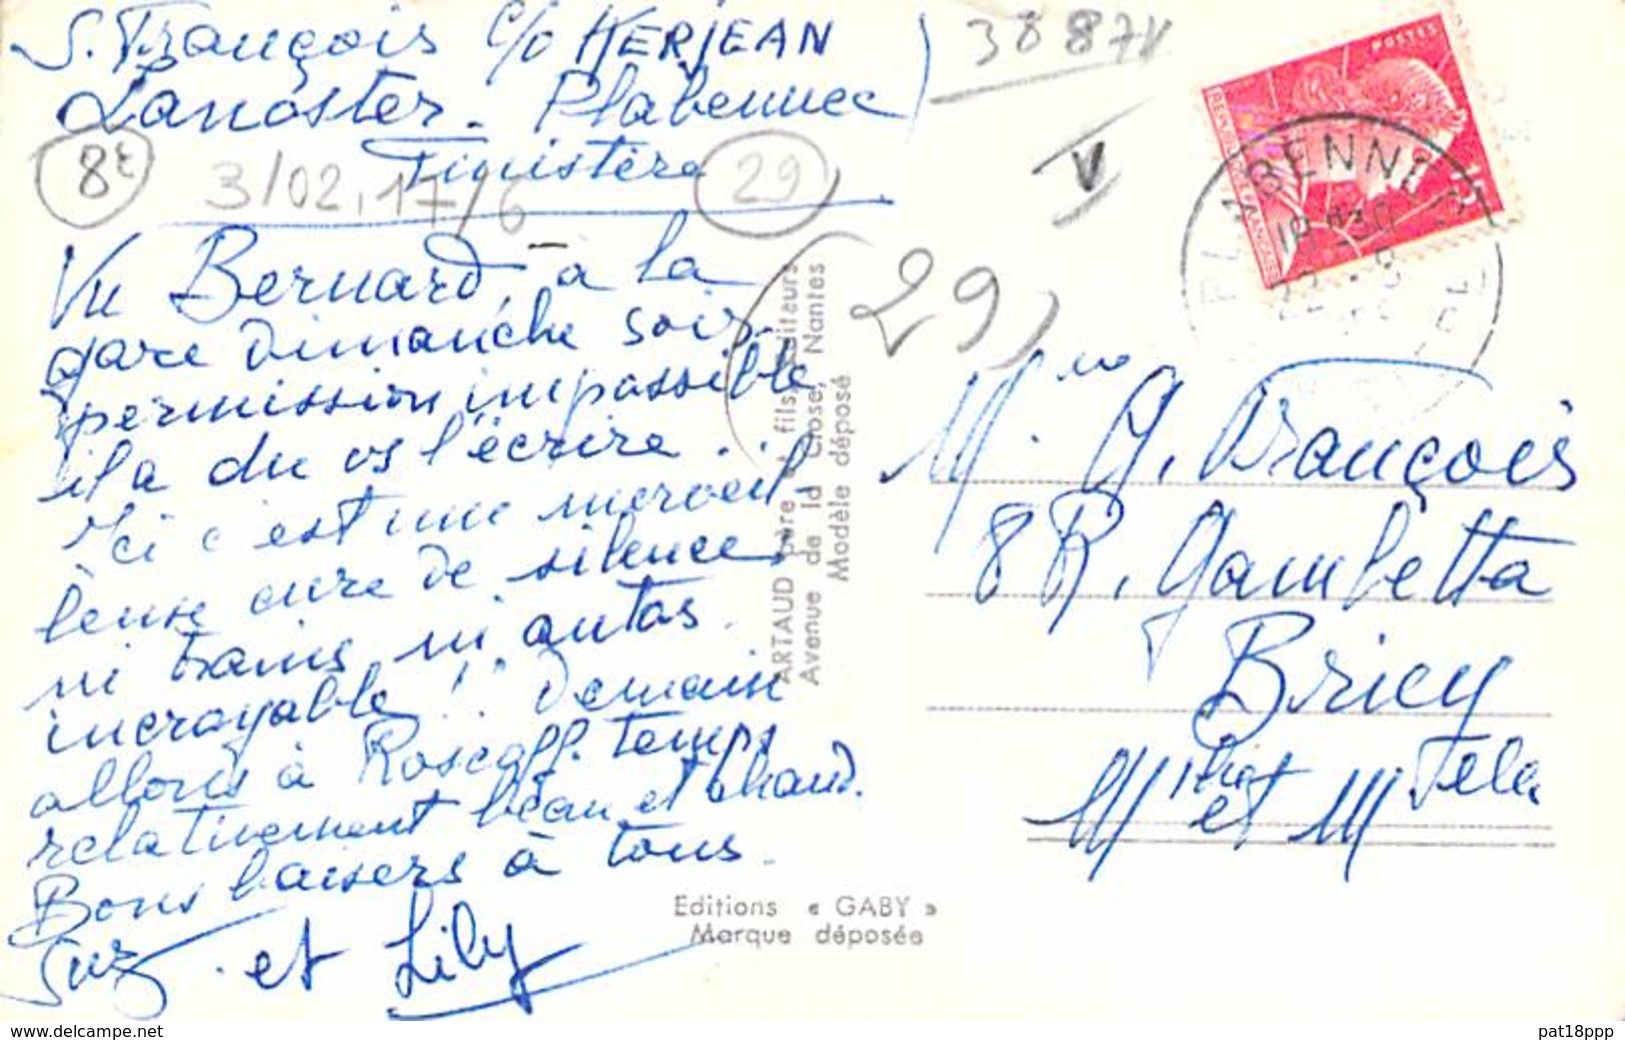 S. François c/o KERJEAN
Lanoster. Plabennec
Finistère
3887V
V
8t
3/02,17/6
29
29
Vu Bernard à la
gare dimanche soir.
permission impossible
il a du vs l'écrire...
Ici c'est une merveil
leuse cure de silence
ni trains ni autos.
incroyable!! Demain
allons à Roscoff. temps
relativement beau et chaud.
Bons baisers à tous.
Suz et Lily
ARTAUD père et fils, Editeurs
Avenue de la Close, Nantes
Modèle déposé
Editions « GABY »
Marque déposée
POSTES
REPUBLIQUE FRANÇAISE
PLABENNEC
18 H30
22 - 8
G. François
8 R. Gambetta
Briey
M the et M elle
www.delcampe.net
pat18ppp